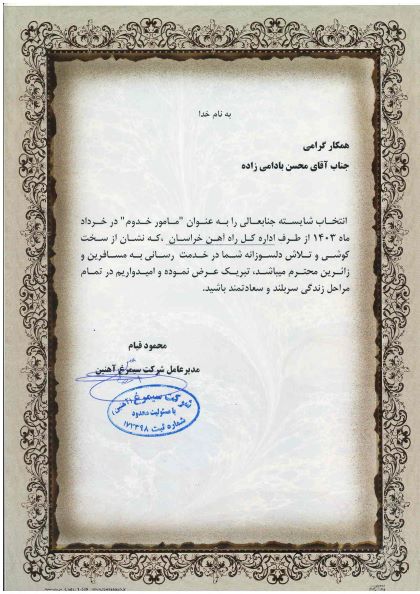 به نام خدا
همکار گرامی
جناب آقای محسن بادامی زاده
انتخاب شایسته جنابعالی را به عنوان "مامور خدوم" در خرداد
ماه ۱۴۰۳ از طرف اداره کل راه آهن خراسان ،که نشان از سخت
کوشی و تلاش دلسوزانه شما در خدمت رسانی به مسافرین و
زائرین محترم میباشد، تبریک عرض نموده و امیدواریم در تمام
مراحل زندگی سربلند و سعادتمند باشید.
محمود قیام
مدیرعامل شرکت سیمرغ آهنین
شرکت سیمرغ (آهنین)
با مسئولیت محدود
شماره ثبت ۱۷۳۴۹۸